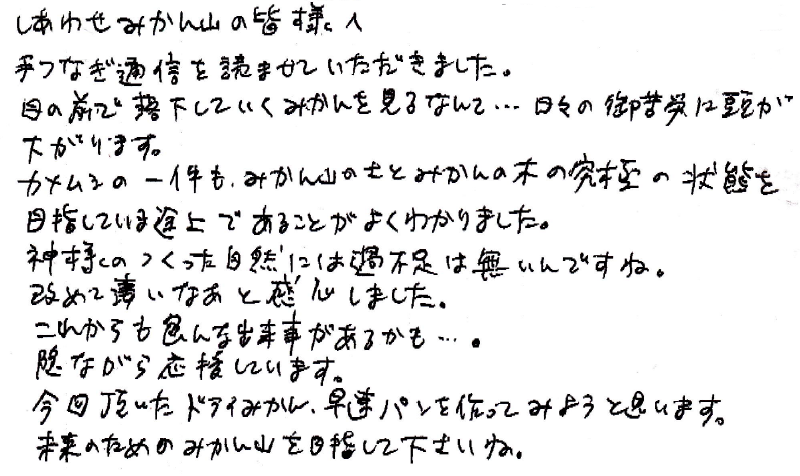 しあわせみかん山の皆様へ
手つなぎ通信を読ませていただきました。
目の前で落下していくみかんを見るなんて… 日々の御苦労に頭が
下がります。
カメムシの一件も、みかん山の土とみかんの木の究極の状態を
目指している途上であることがよくわかりました。
神様のつくった自然には過不足は無いんですね。
改めて凄いなあと感心しました。
これからも色んな出来事があるかも…。
陰ながら応援しています。
今回頂いたドライみかん、早速パンを作ってみようと思います。
未来のためのみかん山を目指して下さいね。